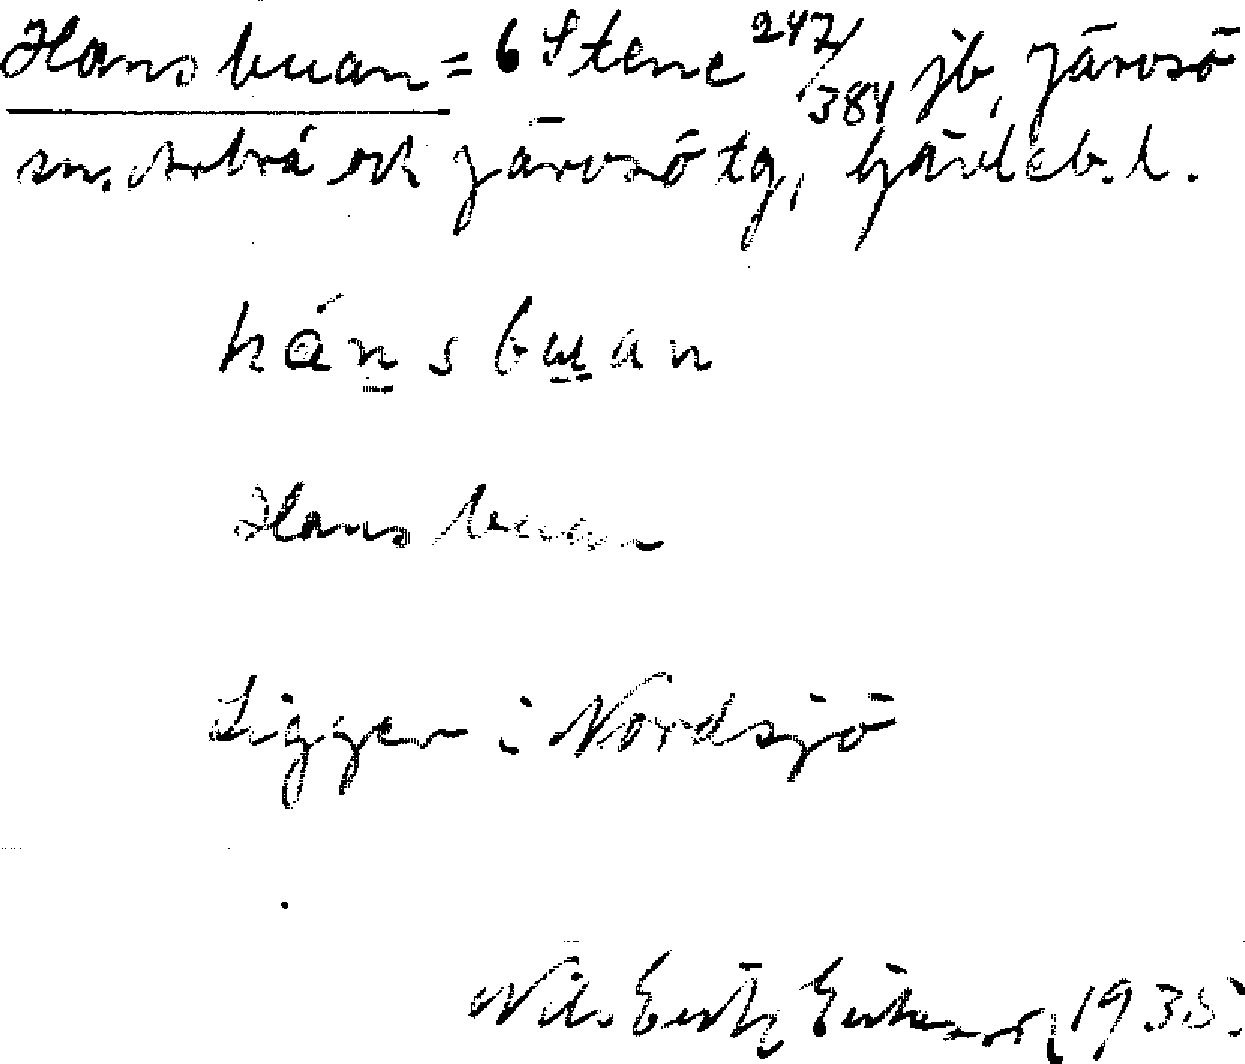 Hansbuan = 6 Stene 247/384 jb, Järvsö
sn. Arbrå och Järvsö tg, Gävleb. l.
hánsbuan
Hansbuan
Ligger i Nordsjö
Nils 1935.